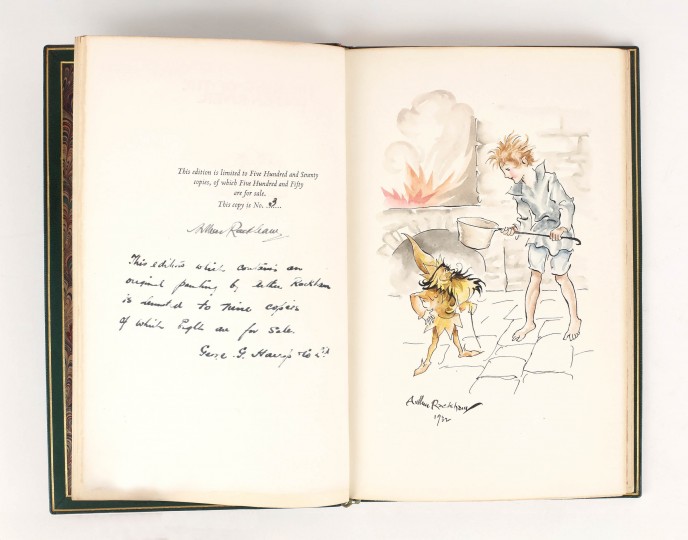 This edition is limited to Five Hundred and Seventy
copies, of which Five Hundred and Fifty
are for sale.
This copy is No. 3
Arthur Rackham
This edition which contains an
original painting by Arthur Rackham
is limited to nine copies
of which Eight are for sale.
George G. Harrap & Co Ltd
Arthur Rackham
1932